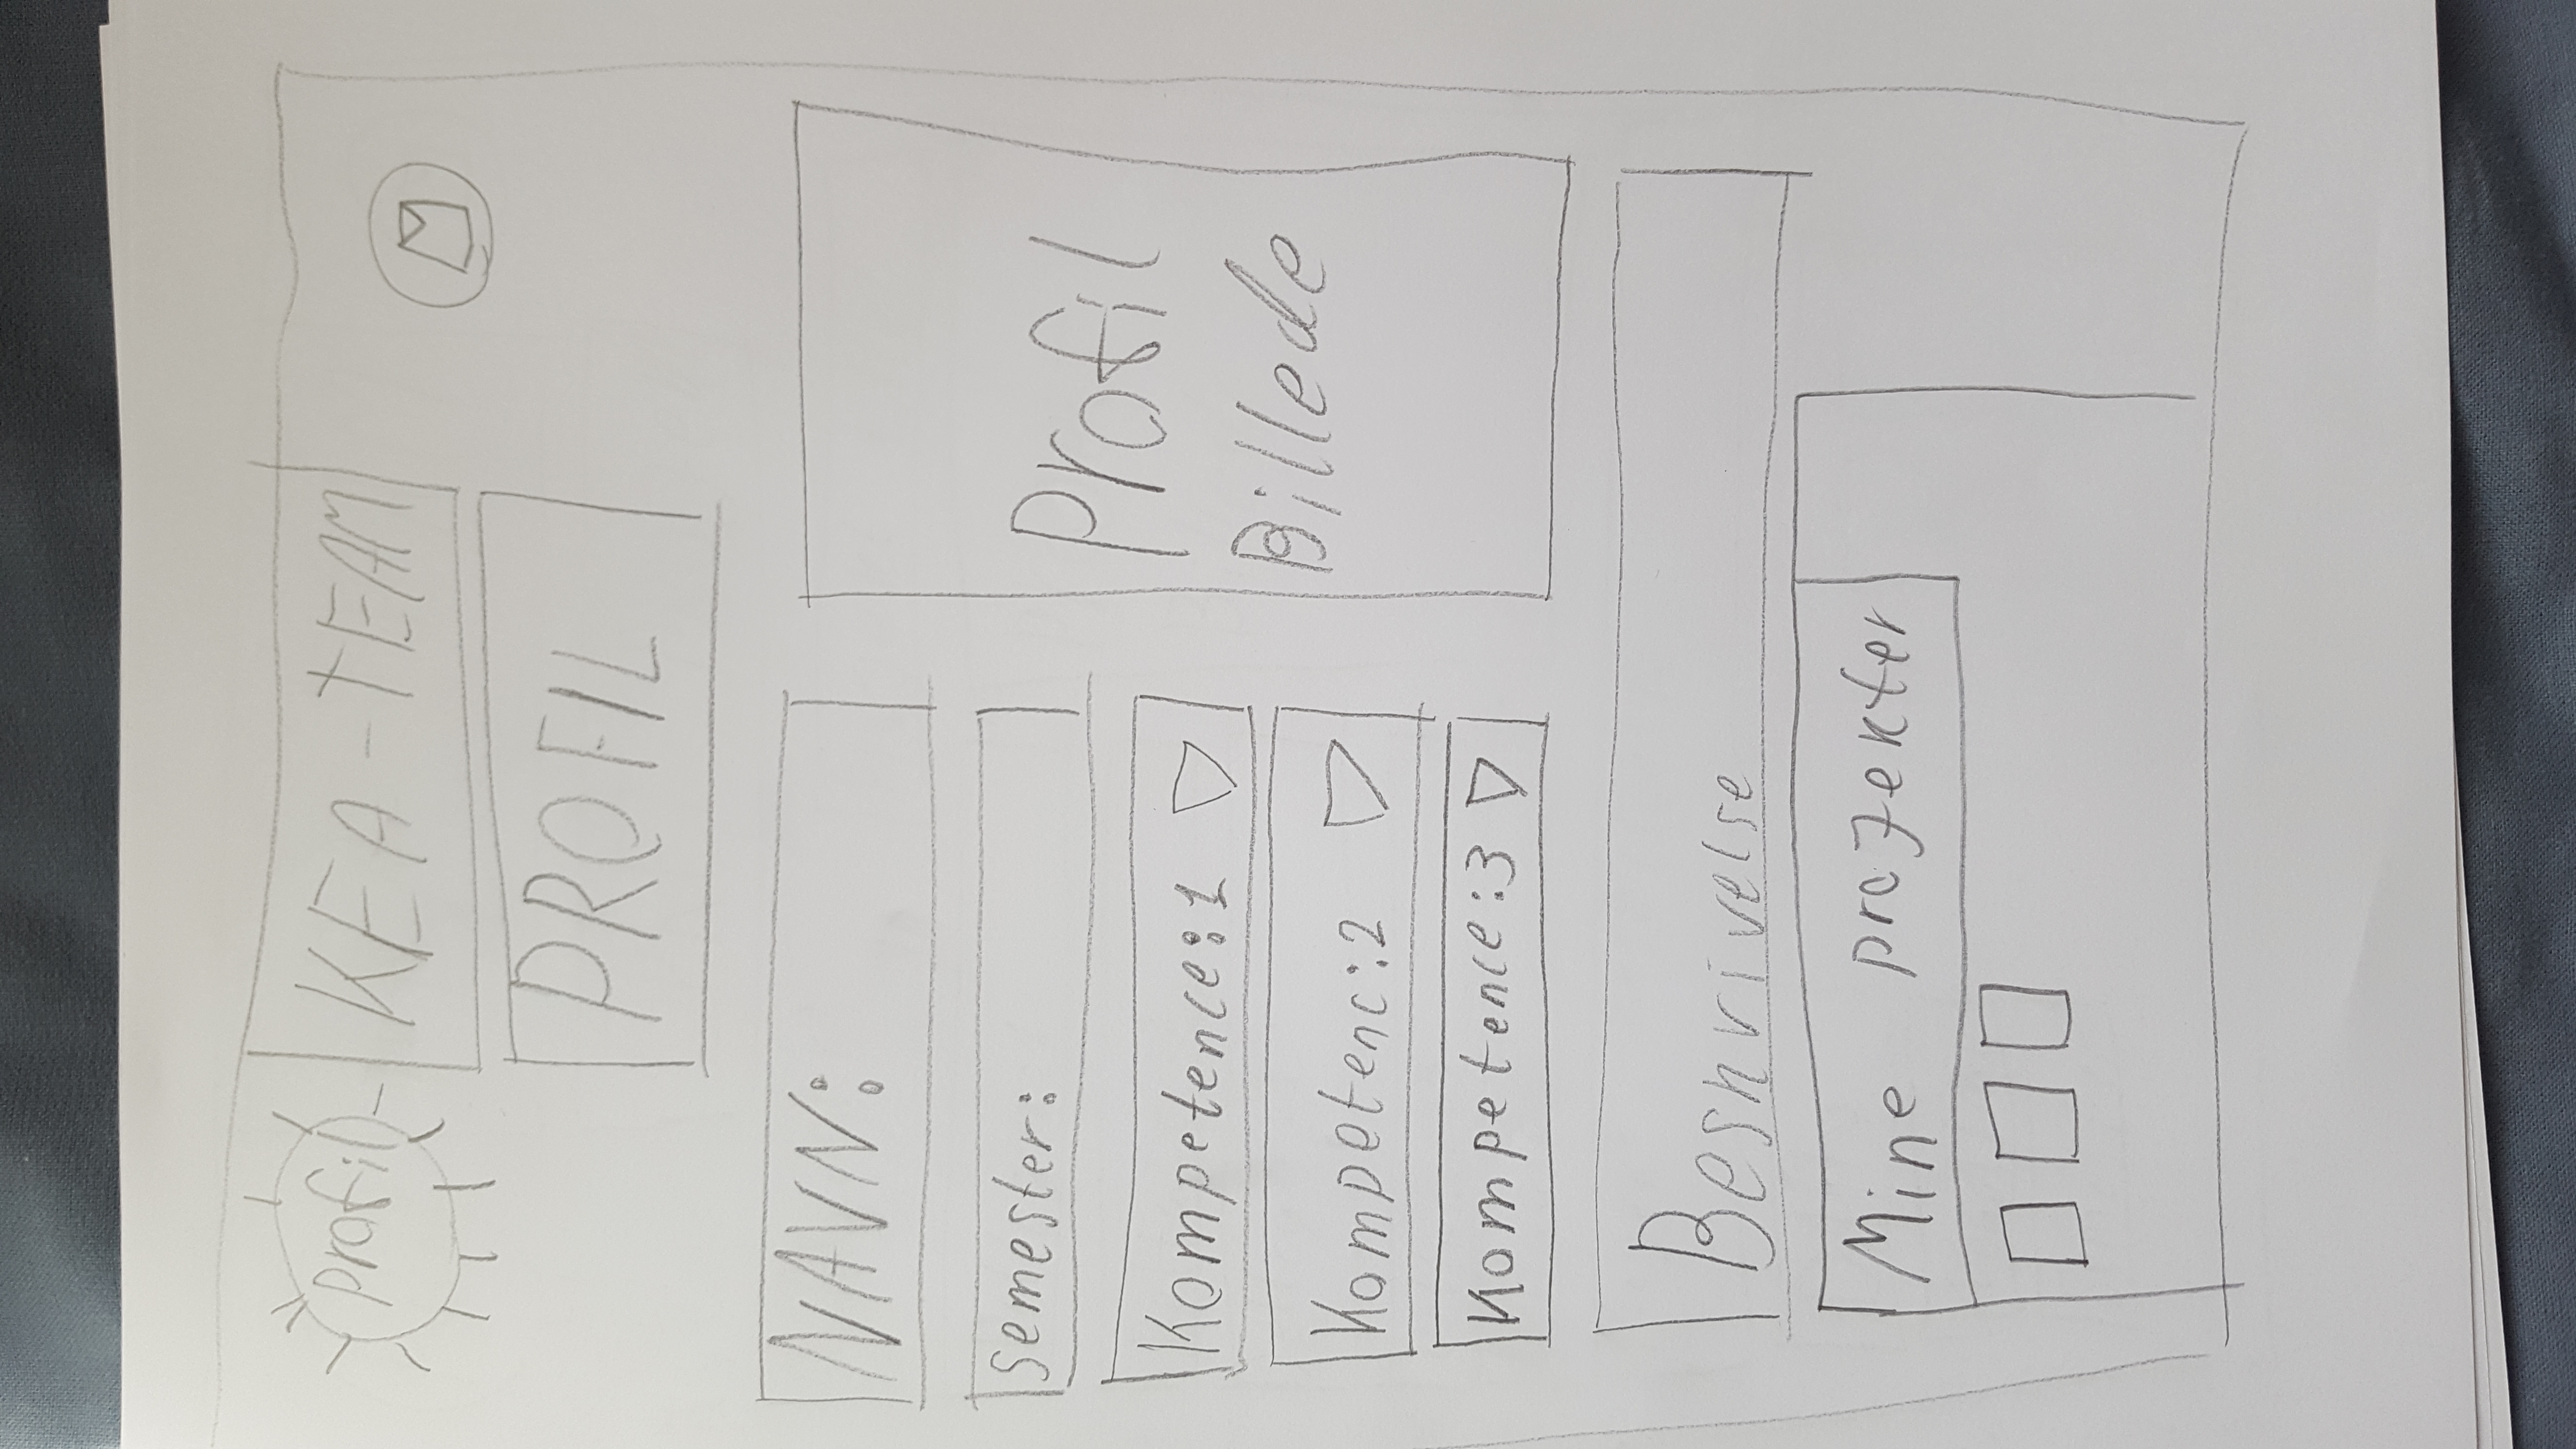 Profil
KEA-TEAM
PROFIL
NAVN:
Semester:
Kompetence:1
Kompetenc:2
Kompetence:3
Profil
Billede
Beskrivelse
Mine projekter